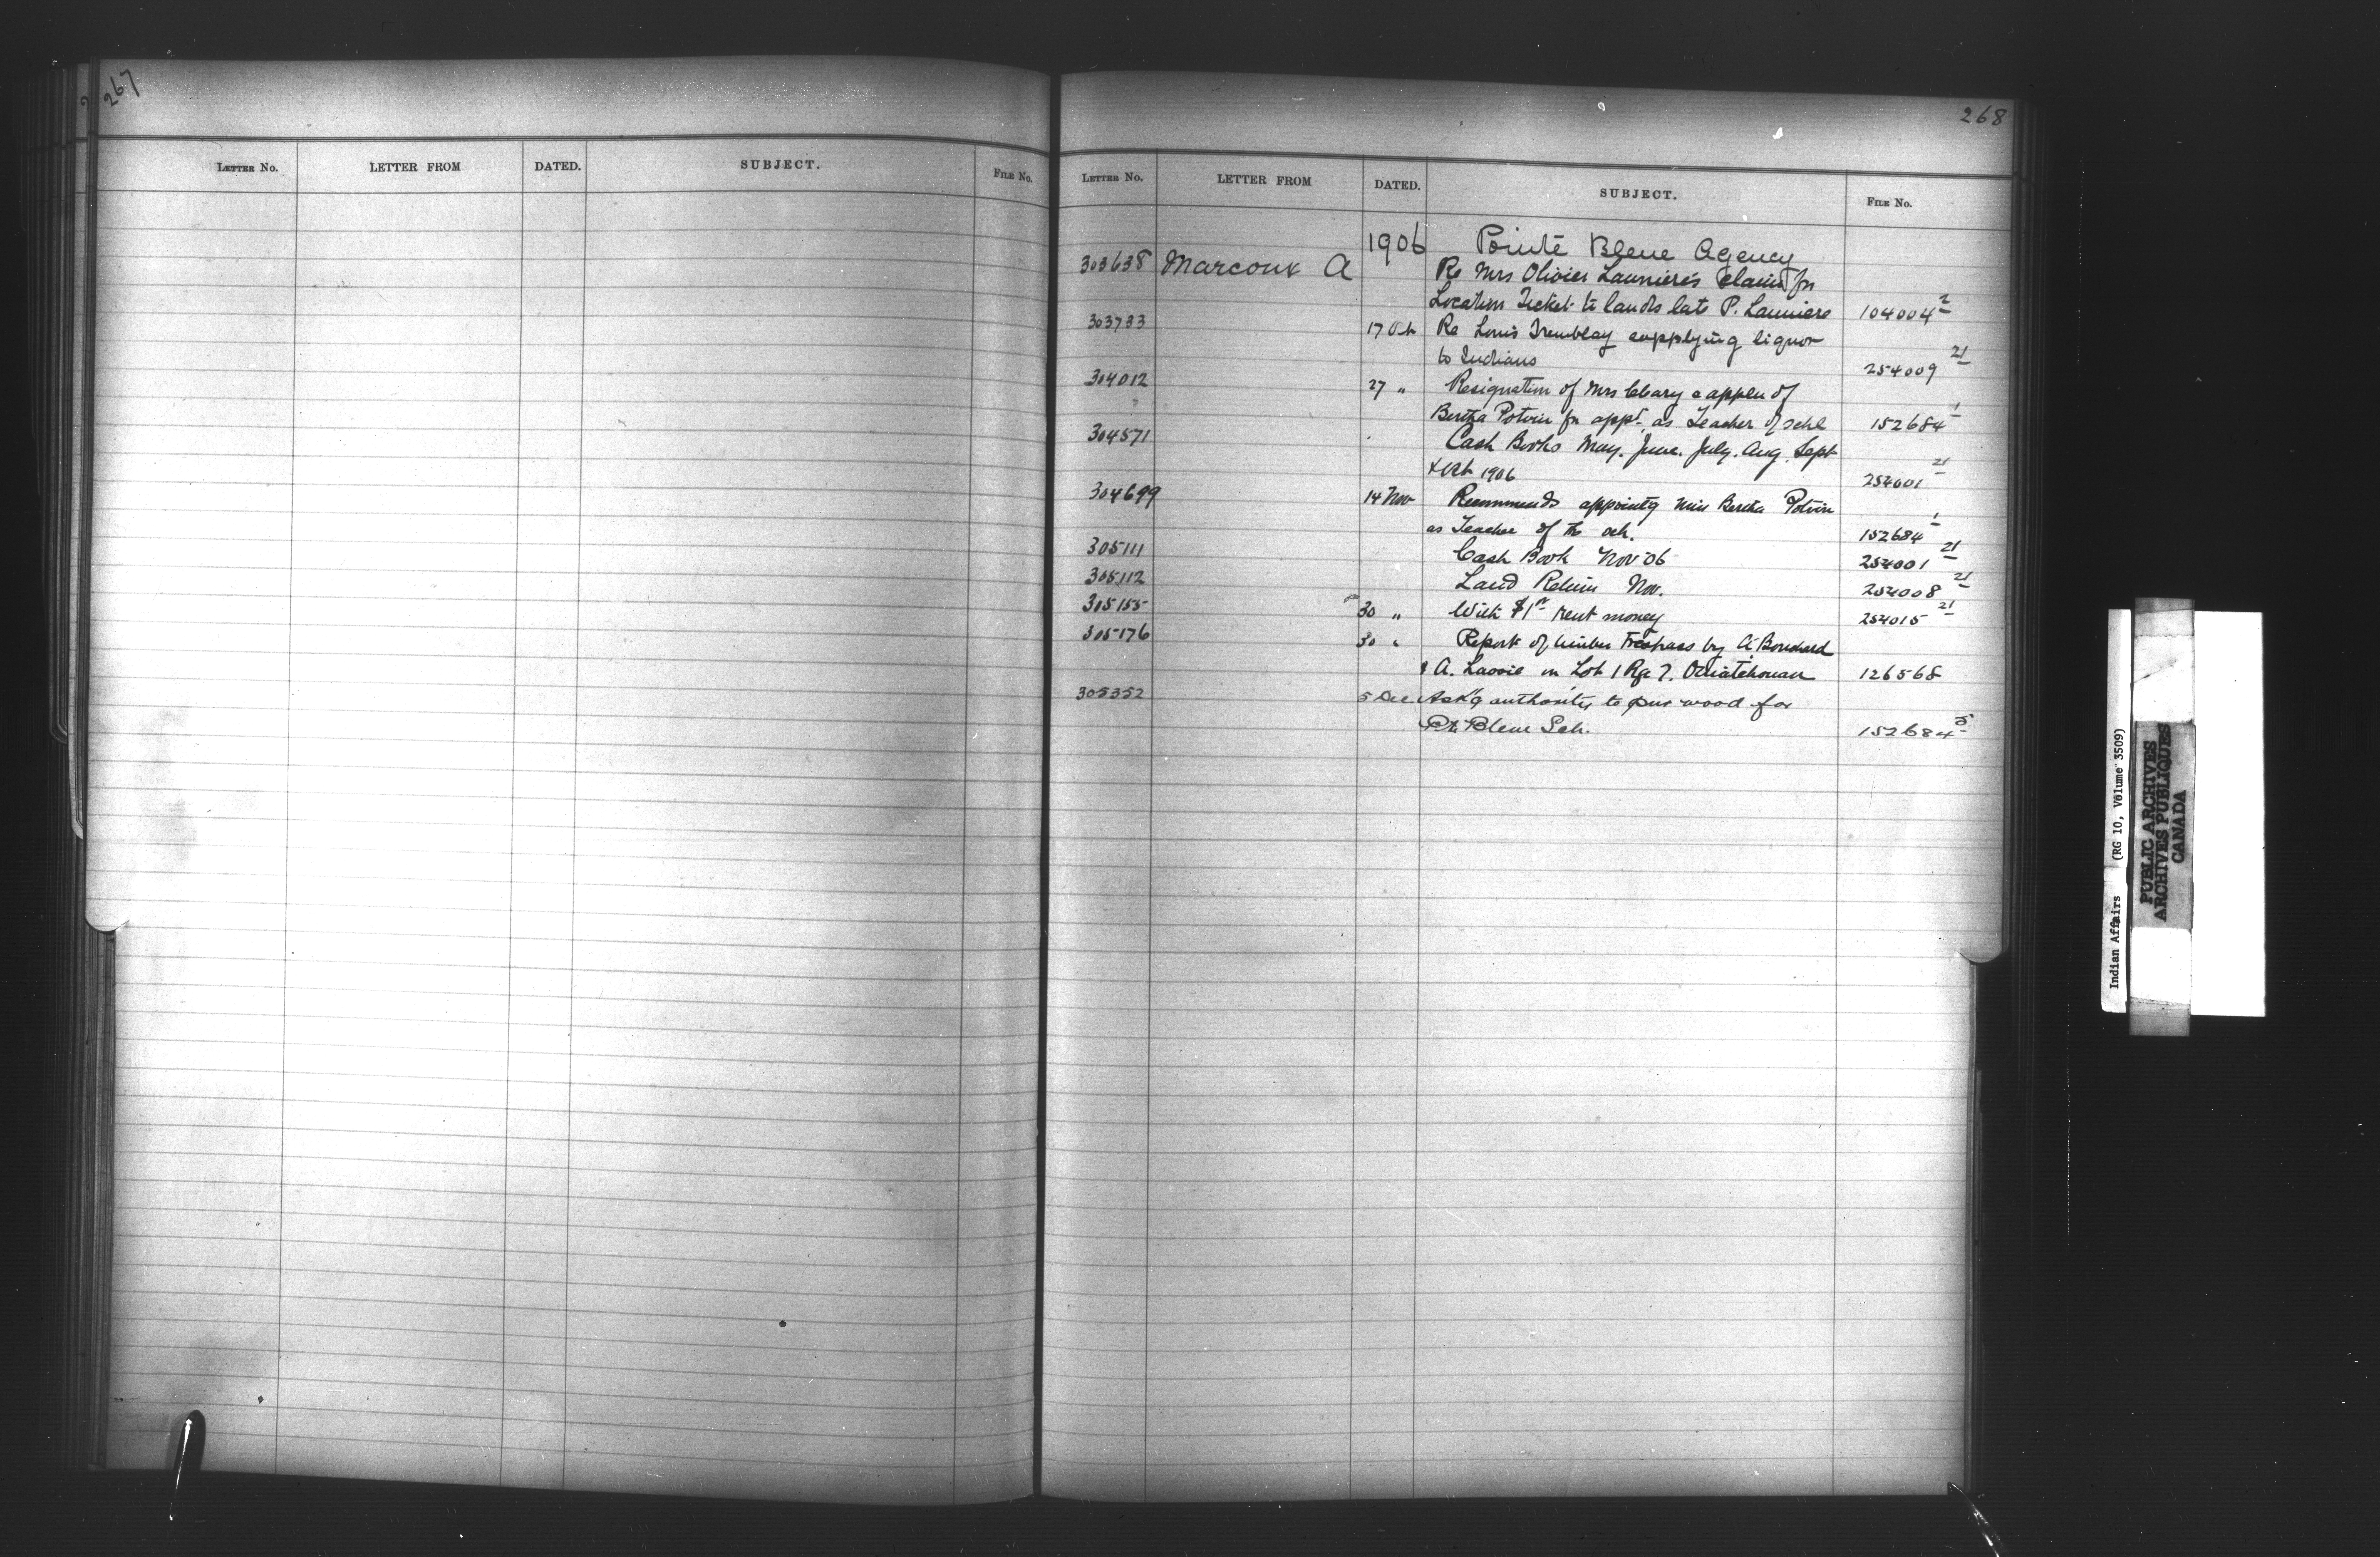 267
LETTER NO. LETTER FROM DATED. SUBJECT. FILE NO.
268
LETTER NO. LETTER FROM DATED. SUBJECT. FILE NO.
1906 Pointe Bleue Agency
303638 Marcoux A Re Mrs Olivier Launiere's claim for
Location Ticket to lands late P. Launiere 104004 2
303733 17 Oct Re Louis Tremblay supplying liquor
to Indians 254009 21
304012 27 " Resignation of Mrs Cleary & applen of
Bertha Potvin for appt. as Teacher of schl 152684 1
304571 Cash Books May. June. July. Aug. Sept
& Oct 1906 254001 21
304699 14 Nov Recommends appointg Miss Bertha Potvin
as Teacher of the sch. 152684 1
305111 Cash Book Nov '06 254001 21
305112 Land Return Nov. 254008 21
305155 30 " With $1 rent money 254015 21
305176 30 " Report of timber Trespass by A. Bouchard
& A. on Lot 1 Rge 7. Ouiatchouan 126568
305352 5 Dec Ask'g authority to pur wood for
Pte Bleue Sch. 152684
Indian Affairs (RG 10, Volume 3509)
PUBLIC ARCHIVES
ARCHIVES PUBLIQUES
CANADA